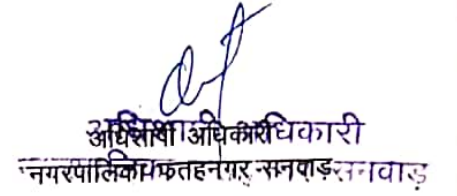 अधिशाषी अधिकारी
नगरपालिका फतहनगर-सनवाड़